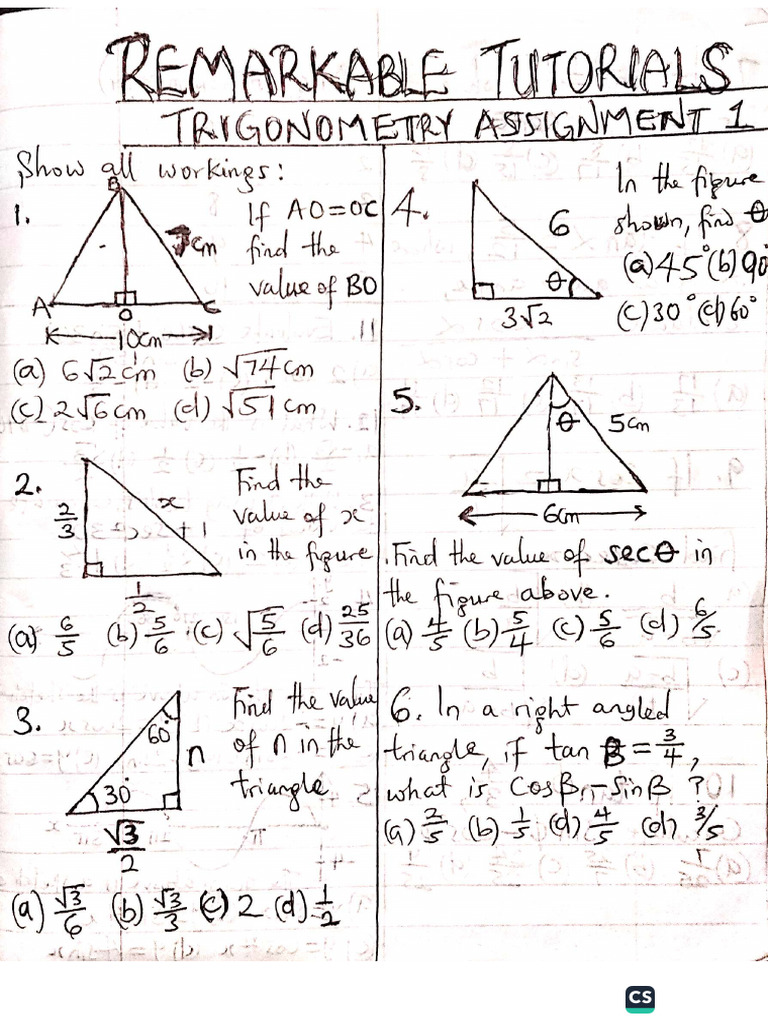 REMARKABLE TUTORIALS
TRIGONOMETRY ASSIGNMENT 1
Show all workings:
1.
B
A
O
C
7cm
10cm
If AO=OC
find the
value of BO
(a) 6√2cm (b) √74cm
(c) 2√6cm (d) √51cm
2.
2/3
x
1/2
Find the
value of x
in the figure
(a) 6/5 (b) 5/6 (c) √5/6 (d) 25/36
3.
60°
n
30°
√3/2
Find the value
of n in the
triangle
(a) √3/6 (b) √3/3 (c) 2 (d) 1/2
4.
6
θ
3√2
In the figure
shown, find θ
(a) 45° (b) 90°
(c) 30° (d) 60°
5.
θ
5cm
6cm
Find the value of secθ in
the figure above.
(a) 4/5 (b) 5/4 (c) 5/6 (d) 6/5
6. In a right angled
triangle, if tan β = 3/4,
what is Cosβ - Sinβ ?
(a) 2/5 (b) 1/5 (d) 4/5 (d) 3/5
CS